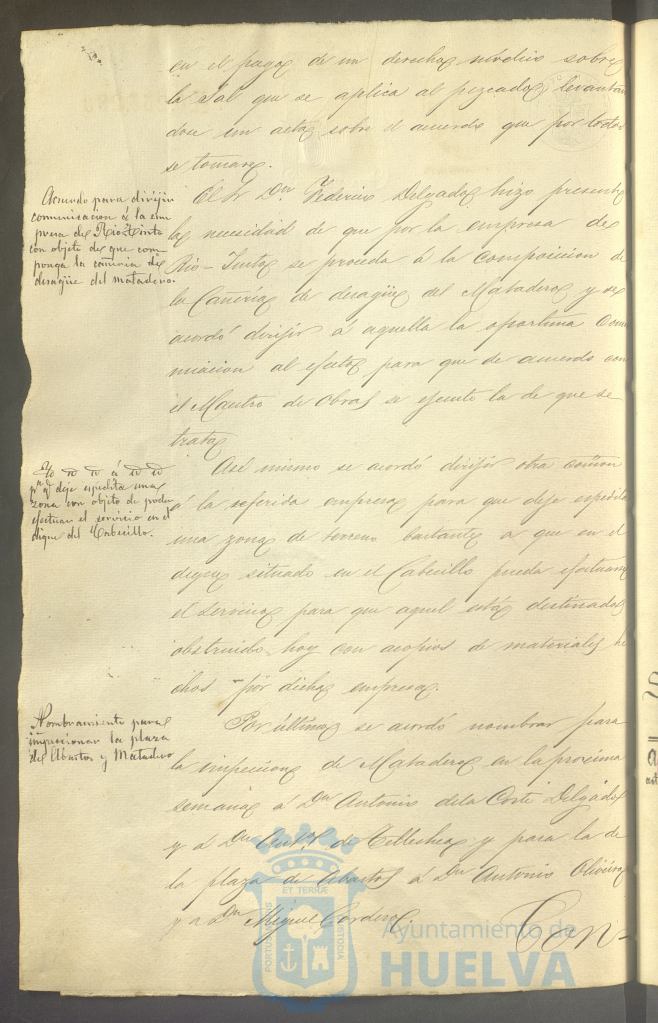 en el pago de un derecho módico sobre
la Sal que se aplica al pezcado, levantan
dose un acta sobre el acuerdo que por todos
se tomare.
Acuerdo para dirijir
comunicacion á la em
presa de Rio-Tinto
con objeto de que com
ponga la cañeria de
desagüe del matadero.
El Sr Dn Federico Delgado hizo presente
la necesidad de que por la empresa de
Rio-Tinto se proceda á la composicion de
la Cañería de desagüe del Matadero y se
acordó dirijir á aquella la oportuna comu
nicacion al efecto para que de acuerdo con
el Maestro de Obras se ejecute la de que se
trata
pa q deje espedita una
zona con objeto de poder
efectuar el servicio en el
dique del Cabecillo.
Asi mismo se acordó dirijir otra comon
á la referida empresa para que deje espedita
una zona de terreno bastante a que en el
dique situado en el Cabecillo pueda efectuarse
el servicio para que aquel está destinado
obstruido hoy con acopios de materiales he
chos por dicha empresa.
Nombramiento para
inspeccionar la plaza
de Abastos y Matadero
Por último se acordó nombrar para
la inspeccion de Matadero en la proxima
semana á Dn Antonio de la Corte Delgado
y á Dn de Tellechea y para la de
la plaza de Abastos á Dn Antonio Oliveira
y a Dn Miguel Cordero.
Con-
PORTUS MARIS ET TERRÆ CUSTODIA
Ayuntamiento de
HUELVA